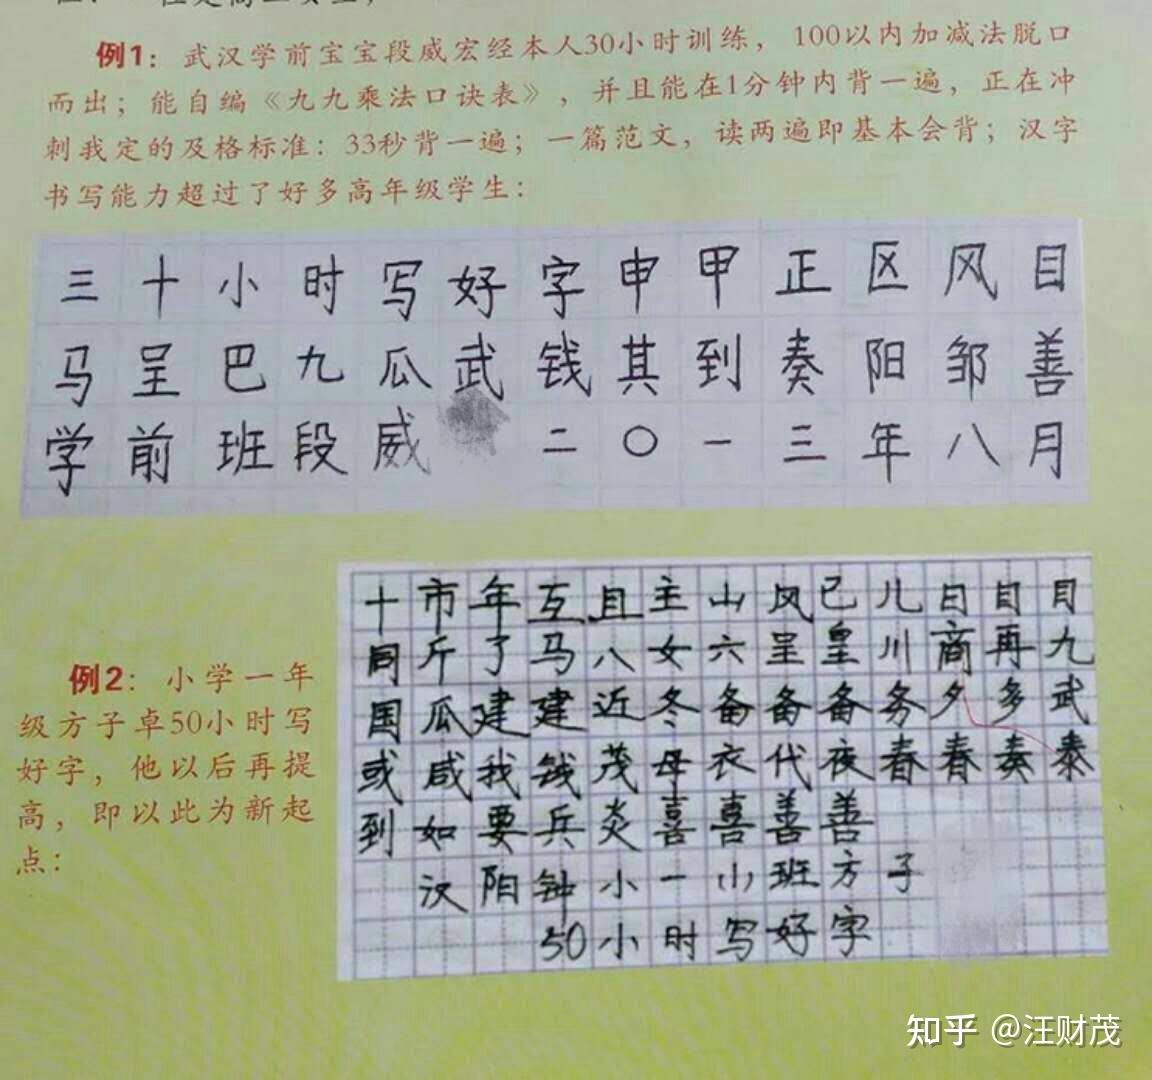 例1：武汉学前宝宝段威宏经本人30小时训练，100以内加减法脱口
而出；能自编《九九乘法口诀表》，并且能在1分钟内背一遍，正在冲
刺我定的及格标准：33秒背一遍；一篇范文，读两遍即基本会背；汉字
书写能力超过了好多高年级学生：
三十小时写好字申甲正区风目
马呈巴九瓜武钱其到奏阳邹善
学前班段威 二〇一三年八月
例2：小学一年
级方子卓50小时写
好字，他以后再提
高，即以此为新起
点：
十市年互且主山风已儿日目月
同斤了马八女六呈皇川商再九
国瓜建建近冬备备备务夕多武
或咸我钱茂母衣代夜春春奏泰
到如要兵炎喜喜善善
汉阳钟小一小班方子
50小时写好字
知乎 @汪财茂